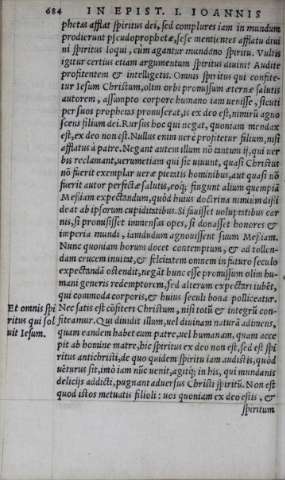 684 IN EPIST. I. IOANNIS
phetas afflat spiritus dei, sed complures iam in mundum
prodierunt pseudoprophetæ, sese mentientes afflatu diui
ni spiritus loqui, cum agantur mundano spiritu. Vultis
igitur certius etiam argumentum spiritus diuini? Audite
profitentem & intelligetis. Omnis spiritus qui confite-
tur Iesum Christum, olim orbi promissum æternæ salutis
autorem, assumpto corpore humano iam uenisse, sicuti
per suos prophetas promiserat, is ex deo est, nimirū agno
scens filium dei. Rursus hoc qui negat, quoniam mendax
est, ex deo non est. Nullus enim uere profitetur filium, nisi
afflatus à patre. Negant autem illum nō tantum ij, qui uer
bis reclamant, uerumetiam qui sic uiuunt, quasi Christus
nō fuerit exemplar ueræ pietatis hominibus, aut quasi nō
fuerit autor perfectæ salutis, eoq; fingunt alium quempiā
Messiam expectandum, quòd huius doctrina nimium dissi
deat ab ipsorum cupiditatibus. Si fauisset uoluptatibus car
nis, si promisisset immensas opes, si donasset honores &
imperia mundi, iamdudum agnouissent suum Messiam.
Nunc quoniam horum docet contemptum, & ad tollen-
dam crucem inuitat, & felicitatem omnem in futuro seculo
expectandā ostendit, negāt hunc esse promissum olim hu-
mani generis redemptorem, sed alterum expectari iubēt,
qui commoda corporis, & huius seculi bona polliceatur.
Et omnis spi
ritus qui sol
uit Iesum.
Nec satis est cōfiteri Christum, nisi totū & integrū con-
fiteamur. Qui diuidit illum, uel diuinam naturā adimens,
quam eandem habet cum patre, uel humanam, quam acce
pit ab homine matre, hic spiritus ex deo non est, sed est spi
ritus antichristi, de quo quidem spiritu iam audistis, quòd
uēturus sit, imò iam nūc uenit, agitq; in his, qui mundanis
delicijs addicti, pugnant aduersus Christi spiritū. Non est
quod istos metuatis filioli: uos quoniam ex deo estis, &
spiritum